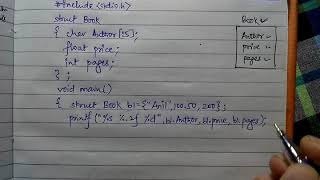 #include <stdio.h>
struct Book
{ char Author[25];
float price;
int pages;
} ;
void main()
{ struct Book b1={"Anil",100.50, 200};
printf("%s %.2f %d", b1.Author, b1.price, b1.pages);
Book
Author
price
pages